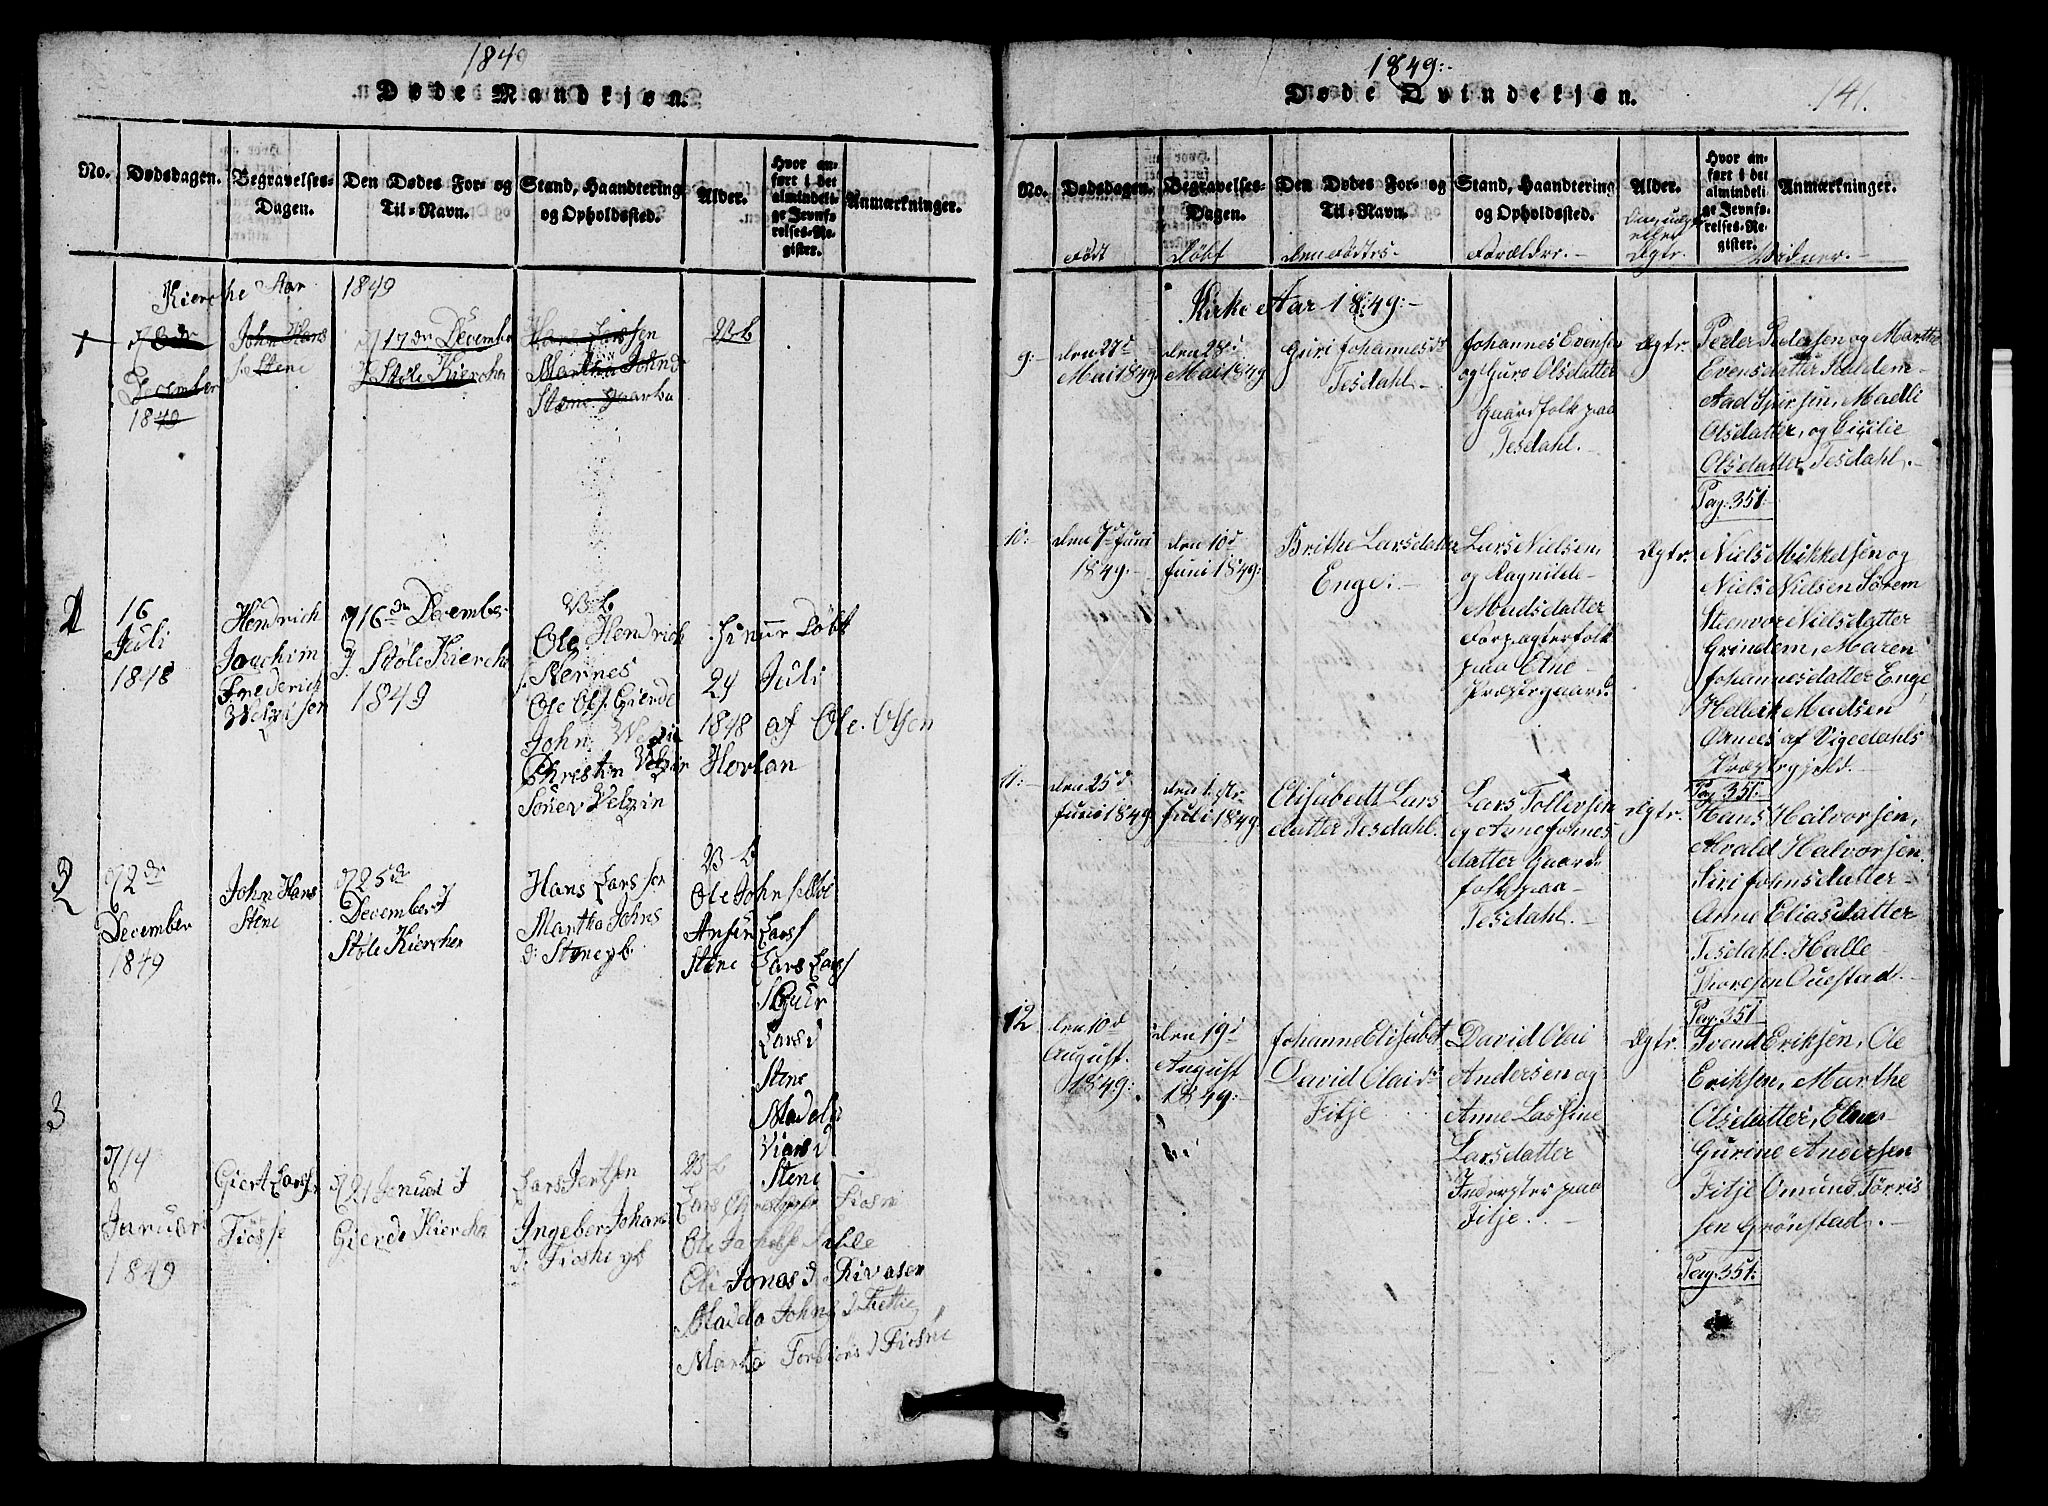 1849
Døde Mandkjøn.
No.
Dødsdagen.
Begravelses-
Dagen.
Den Dødes For- og
Til-Navn.
Stand, Haandtering
og Opholdssted.
Alder.
Hvor an-
ført i det
almindeli-
ge Jevnfø-
relses-Re-
gister.
Anmærkninger.
Kierche Aar 1849
1
December
1849
John Hans
s Stene
17de December
J Støle Kierche
Hans Larssen
Martha Johnsd
V-b
1
16
Juli
1848
Hendrich
Joachim
Frederich
Velzisen
16de December
J. Støle Kierche
1849
V-b.
Ole Hendrich
s. Nernes
Ole Ols. Gierde
John
Christin
Søner Velzin
hiemme Døbt
29 Juli
1848 af Ole Olsen
Hovlan
2
2de
December
1849
John Hans
Stene
25de
December J
Støle Kierche
Hans Larssen
Martha Johns
d: Stene gb.
V-b.
Ole John
Stene
Lars Lars
Lars d
Stene
Stene
3
14
Januari
1849
Giert Larss
Fiøsse
21 Januari J
Gierde Kierche
Lars Jertsen
Ingeber Johans
d: Fioske gb
V-b
Ole Jonas d.
Johns d
Marta Torbiørs d Fiosne
1849:-
Døde Qvindekjøn.
141.
No.
Dødsdagen.
Født
Begravelses-
Dagen.
Døbt
Den Dødes For- og
Til-Navn.
den Fødtes-
Stand, Haandtering
og Opholdssted.
Forældre.-
Alder.
eller
Dgtr.
Hvor an-
ført i det
almindeli-
ge Jevnfø-
relses-Re-
gister.
Anmærkninger.
Vidner.-
Kirke Aar 1849:-
9:-
den 27d
Mai 1849
den 28d
Mai 1849
Guri Johannesdr
Tesdahl.-
Johannes Evensen
og Guro Olsdatter
Gaardfolk paa
Tesdahl.-
Dgtr.
Peder Pedersen og Marthe
Evensdatter
Aad Sjursen, Madli
Olsdatter, og Cicilie
Olsdatter Tesdahl.-
Pag. 351:
10:
den 7d Juni
1849.-
den 10d
Juni 1849:
Brithe Larsdatter
Enge:-
Lars Nielsen,
og Ragnilde-
Madsdatter
Forpagterfolk
paa Etne-
Præstegaard.
Dgtr.
Niels Mikkelsen og
Niels Nielsen Sørem
Steenvor Nielsdatter
Grindem, Maren
Johannesdatter Enge,
Helleik Madsen
Ørnees af Vigedahls
Præstegjeld.-
Pag. 351:
11:-
den 25d
Juni 1849
den 1ste
Juli 1849
Elisabedt Lars
datter Tesdahl.
Lars Tollevsen
og Anne Johnes
datter Gaard
folk paa-
Tesdahl.-
Dgtr.
Hans Halvorsen,
Alvald Halvorsen
Siri Johnsdatter-
Anne Eliasdatter
Tesdahl. Halle-
Thoresen Questad.-
Pag. 351
12
den 10d
August.
1849:
den 19d
August
1849:-
Johanne Elisabet
David Olaidr
Fitje
David Olai
Andersen og
Anne Lassine
Larsdatter
Inderster paa
Fitje.-
Dgtr.
Svend Eriksen, Ole
Eriksen, Marthe
Olsdatter, Elen
Gurine Andersen
Fitje Omund Tørris
sen Grønstad.-
Pag. 351: